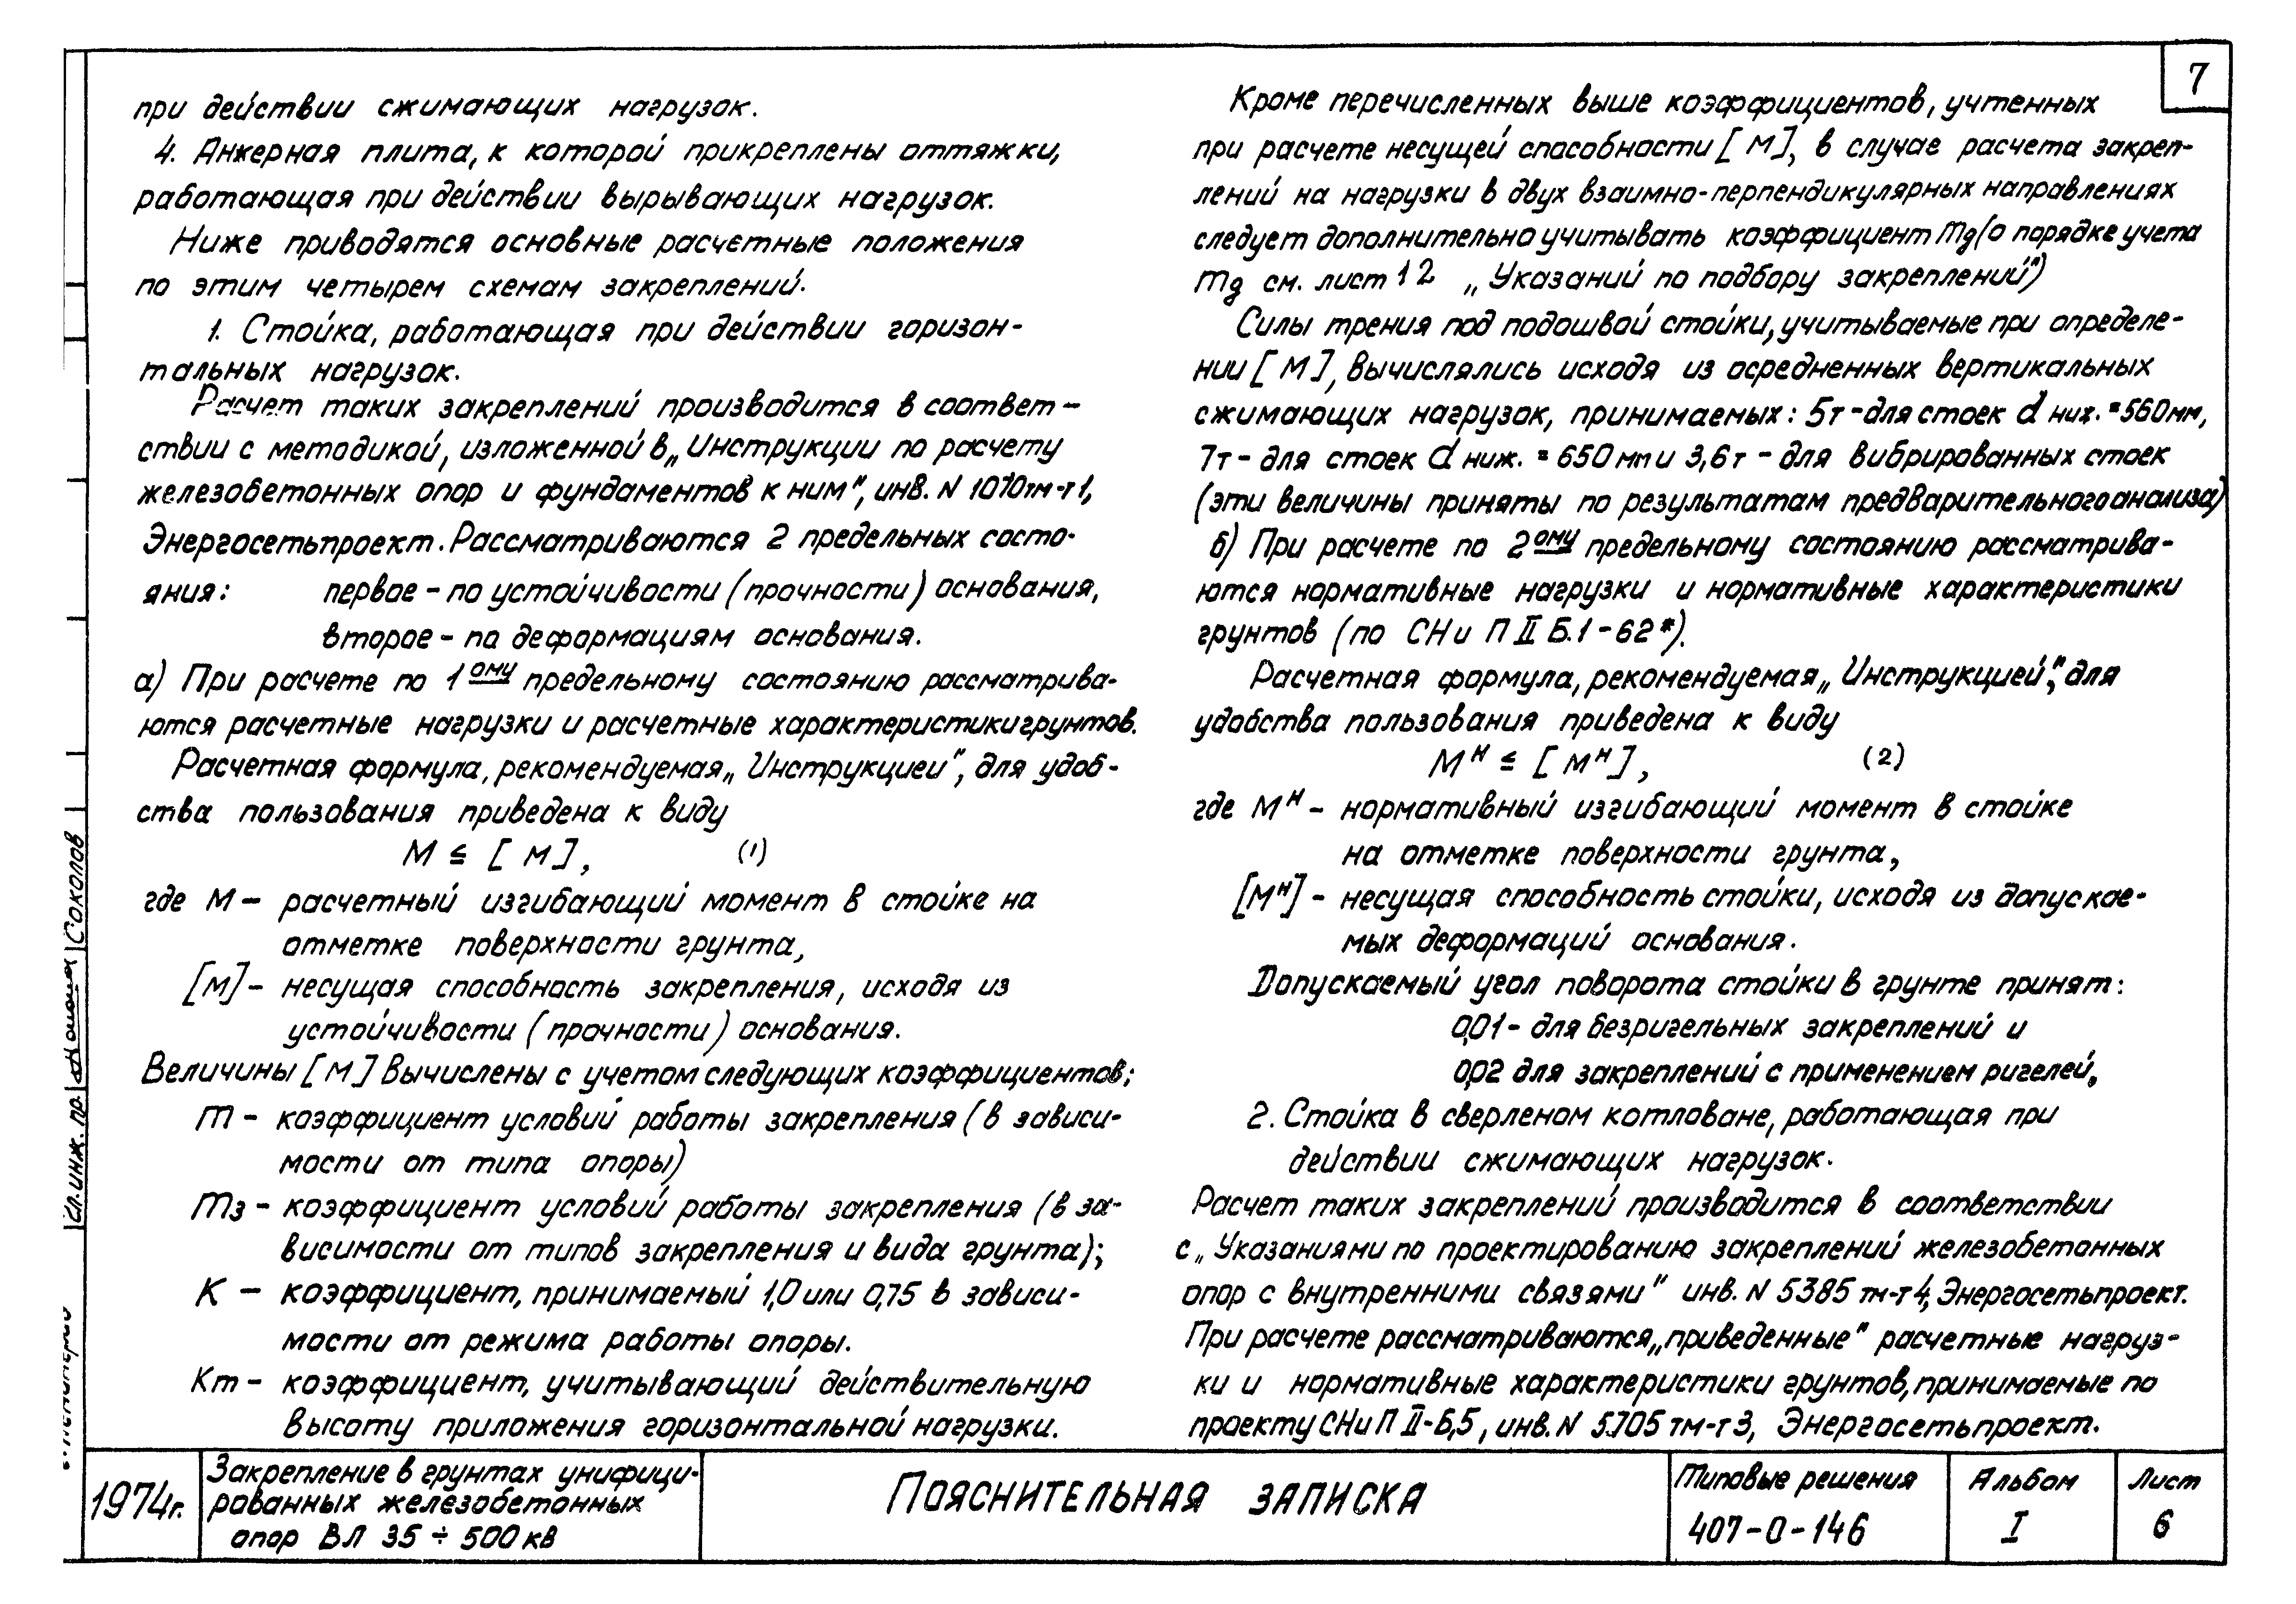 7
при действии сжимающих нагрузок.
4. Анкерная плита, к которой прикреплены оттяжки,
работающая при действии вырывающих нагрузок.
Ниже приводятся основные расчетные положения
по этим четырем схемам закреплений.
1. Стойка, работающая при действии горизон-
тальных нагрузок.
Расчет таких закреплений производится в соответ-
ствии с методикой, изложенной в „Инструкции по расчету
железобетонных опор и фундаментов к ним", инв. N 1070тм-т1,
Энергосетьпроект. Рассматриваются 2 предельных состо-
яния: первое - по устойчивости (прочности) основания,
второе - по деформациям основания.
а) При расчете по 1ому предельному состоянию рассматрива-
ются расчетные нагрузки и расчетные характеристики грунтов.
Расчетная формула, рекомендуемая „Инструкцией", для удоб-
ства пользования приведена к виду
М ≤ [М], (1)
где М - расчетный изгибающий момент в стойке на
отметке поверхности грунта,
[М] - несущая способность закрепления, исходя из
устойчивости (прочности) основания.
Величины [М] вычислены с учетом следующих коэффициентов:
m - коэффициент условий работы закрепления (в зависи-
мости от типа опоры)
mз - коэффициент условий работы закрепления (в за-
висимости от типов закрепления и вида грунта);
К - коэффициент, принимаемый 1,0 или 0,75 в зависи-
мости от режима работы опоры.
Кт - коэффициент, учитывающий действительную
высоту приложения горизонтальной нагрузки.
Кроме перечисленных выше коэффициентов, учтенных
при расчете несущей способности [М], в случае расчета закреп-
лений на нагрузки в двух взаимно-перпендикулярных направлениях
следует дополнительно учитывать коэффициент mg (о порядке учета
mg см. лист 12 „Указаний по подбору закреплений")
Силы трения под подошвой стойки, учитываемые при определе-
нии [М], вычислялись исходя из осредненных вертикальных
сжимающих нагрузок, принимаемых: 5т - для стоек d ниж. = 560мм,
7т - для стоек d ниж. = 650 мм и 3,6т - для вибрированных стоек
(эти величины приняты по результатам предварительного анализа)
б) При расчете по 2ому предельному состоянию рассматрива-
ются нормативные нагрузки и нормативные характеристики
грунтов (по СНиП II Б.1-62*).
Расчетная формула, рекомендуемая „Инструкцией", для
удобства пользования приведена к виду
Мн ≤ [Мн], (2)
где Мн - нормативный изгибающий момент в стойке
на отметке поверхности грунта,
[Мн] - несущая способность стойки, исходя из допускае-
мых деформаций основания.
Допускаемый угол поворота стойки в грунте принят:
0,01 - для безригельных закреплений и
0,02 для закреплений с применением ригелей.
2. Стойка в сверленом котловане, работающая при
действии сжимающих нагрузок.
Расчет таких закреплений производится в соответствии
с „Указаниями по проектированию закреплений железобетонных
опор с внутренними связями" инв. N 5385 тм-т4, Энергосетьпроект.
При расчете рассматриваются „приведенные" расчетные нагруз-
ки и нормативные характеристики грунтов, принимаемые по
проекту СНиП II-Б,5, инв. N 5705 тм-т3, Энергосетьпроект.
Гл. инж. пр. Соколов
1974г.
Закрепление в грунтах унифици-
рованных железобетонных
опор ВЛ 35 ÷ 500 кВ
Пояснительная записка
Типовые решения
407-0-146
Альбом
I
Лист
6